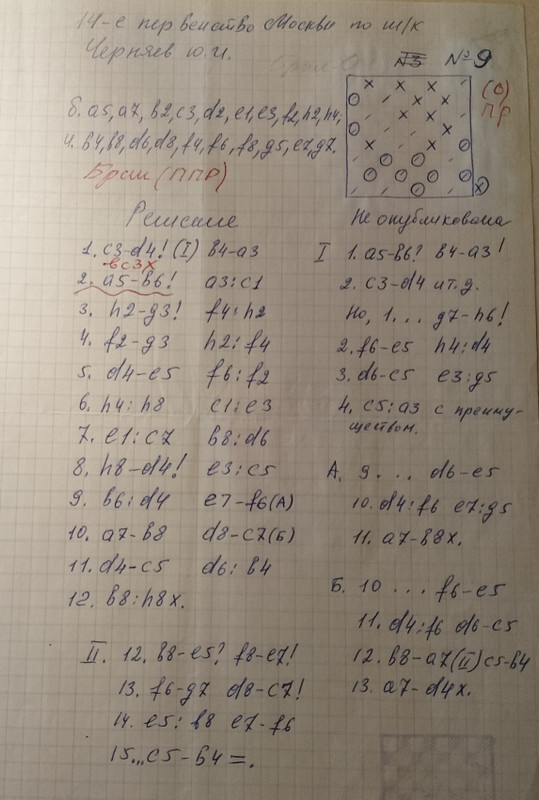 14-е первенство Москвы по ш/к
Черняев Ю.И.
№3 №9
(О)
ПР
б. a5, a7, b2, c3, d2, e1, e3, f2, h2, h4.
ч. b4, b8, d6, d8, f4, f6, f8, g5, e7, g7.
Брак (ППР)
Решение
1. c3-d4! (I) b4-a3
bc3X
2. a5-b6! a3:c1
3. h2-g3! f4:h2
4. f2-g3 h2:f4
5. d4-e5 f6:f2
6. h4:h8 c1:e3
7. e1:c7 b8:d6
8. h8-d4! e3:c5
9. b6:d4 e7-f6(А)
10. a7-b8 d8-c7(Б)
11. d4-c5 d6:b4
12. b8:h8x.
II. 12. b8-e5? f8-e7!
13. f6-g7 d8-c7!
14. e5:b8 e7-f6
15... c5-b4=.
Не опубликована
I 1. a5-b6? b4-a3!
2. c3-d4 и т.д.
Но, 1... g7-h6!
2. f6-e5 h4:d4
3. d6-c5 e3:g5
4. c5:a3 с преиму-
ществом.
А. 9... d6-e5
10. d4:f6 e7:g5
11. a7-b8x.
Б. 10... f6-e5
11. d4:f6 d6-c5
12. b8-a7(II) c5-b4
13. a7-d4x.